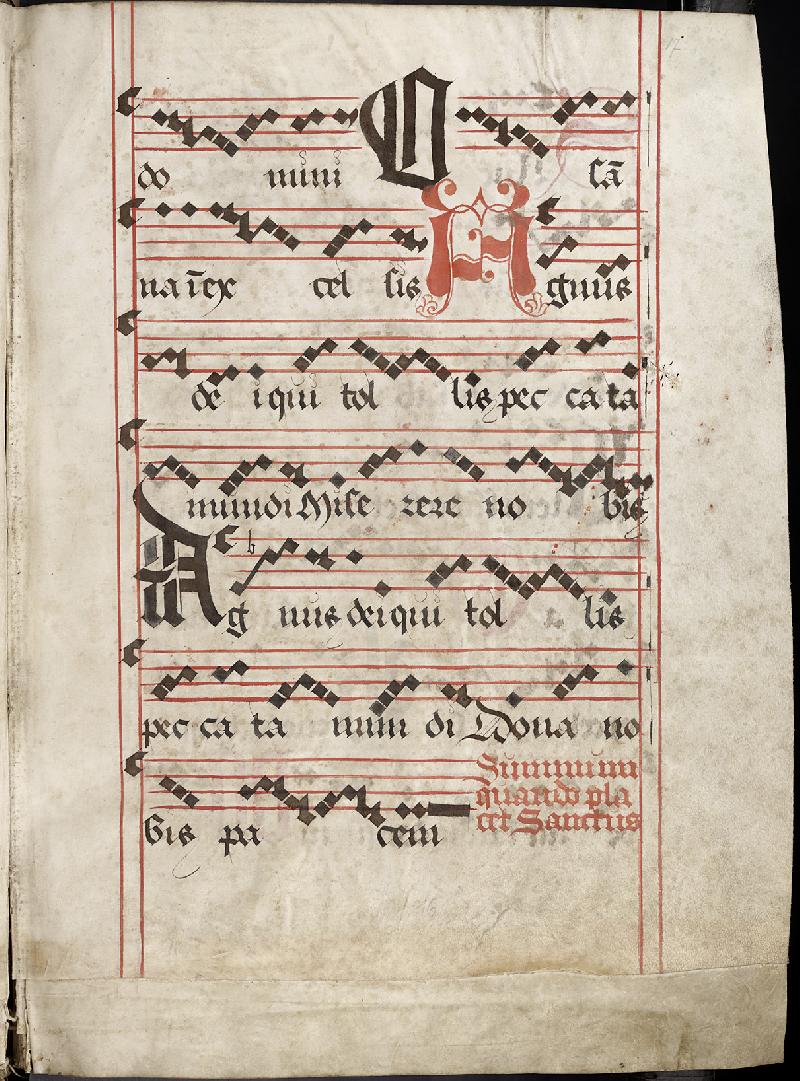 do mini O sā
na īex cel sis Agnus
de i qui tol lis pec ca ta
mundi Mise rere no bis
Ag nus dei qui tol lis
pec ca ta mun di Dona no
bis pa cem Summum
quando pla
cet Sanctus